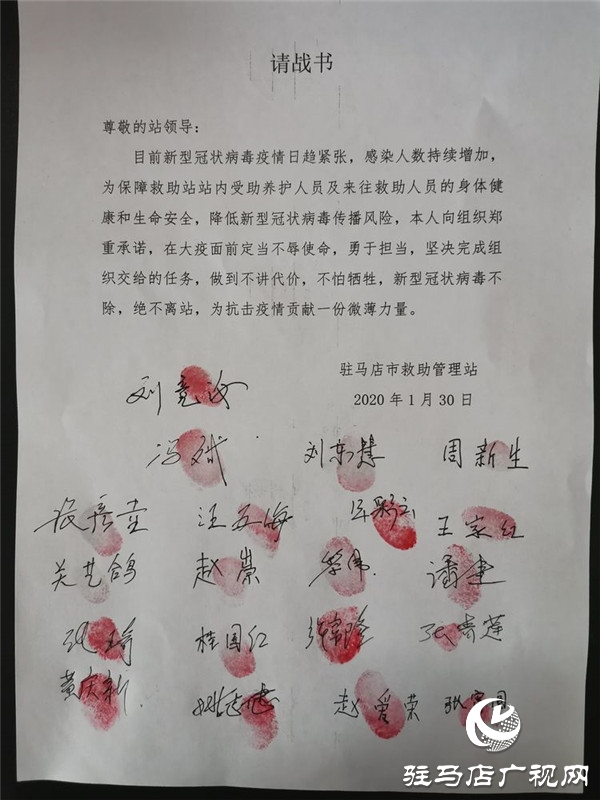 请战书
尊敬的站领导：
目前新型冠状病毒疫情日趋紧张，感染人数持续增加，
为保障救助站站内受助养护人员及来往救助人员的身体健
康和生命安全，降低新型冠状病毒传播风险，本人向组织郑
重承诺，在大疫面前定当不辱使命，勇于担当，坚决完成组
织交给的任务，做到不讲代价，不怕牺牲，新型冠状病毒不
除，绝不离站，为抗击疫情贡献一份微薄力量。
驻马店市救助管理站
2020年1月30日
冯斌 刘东慧 周新生
汪五海 王家红
关艺鸽 赵崇 潘建
桂国红
黄庆新 赵爱荣
驻马店广视网